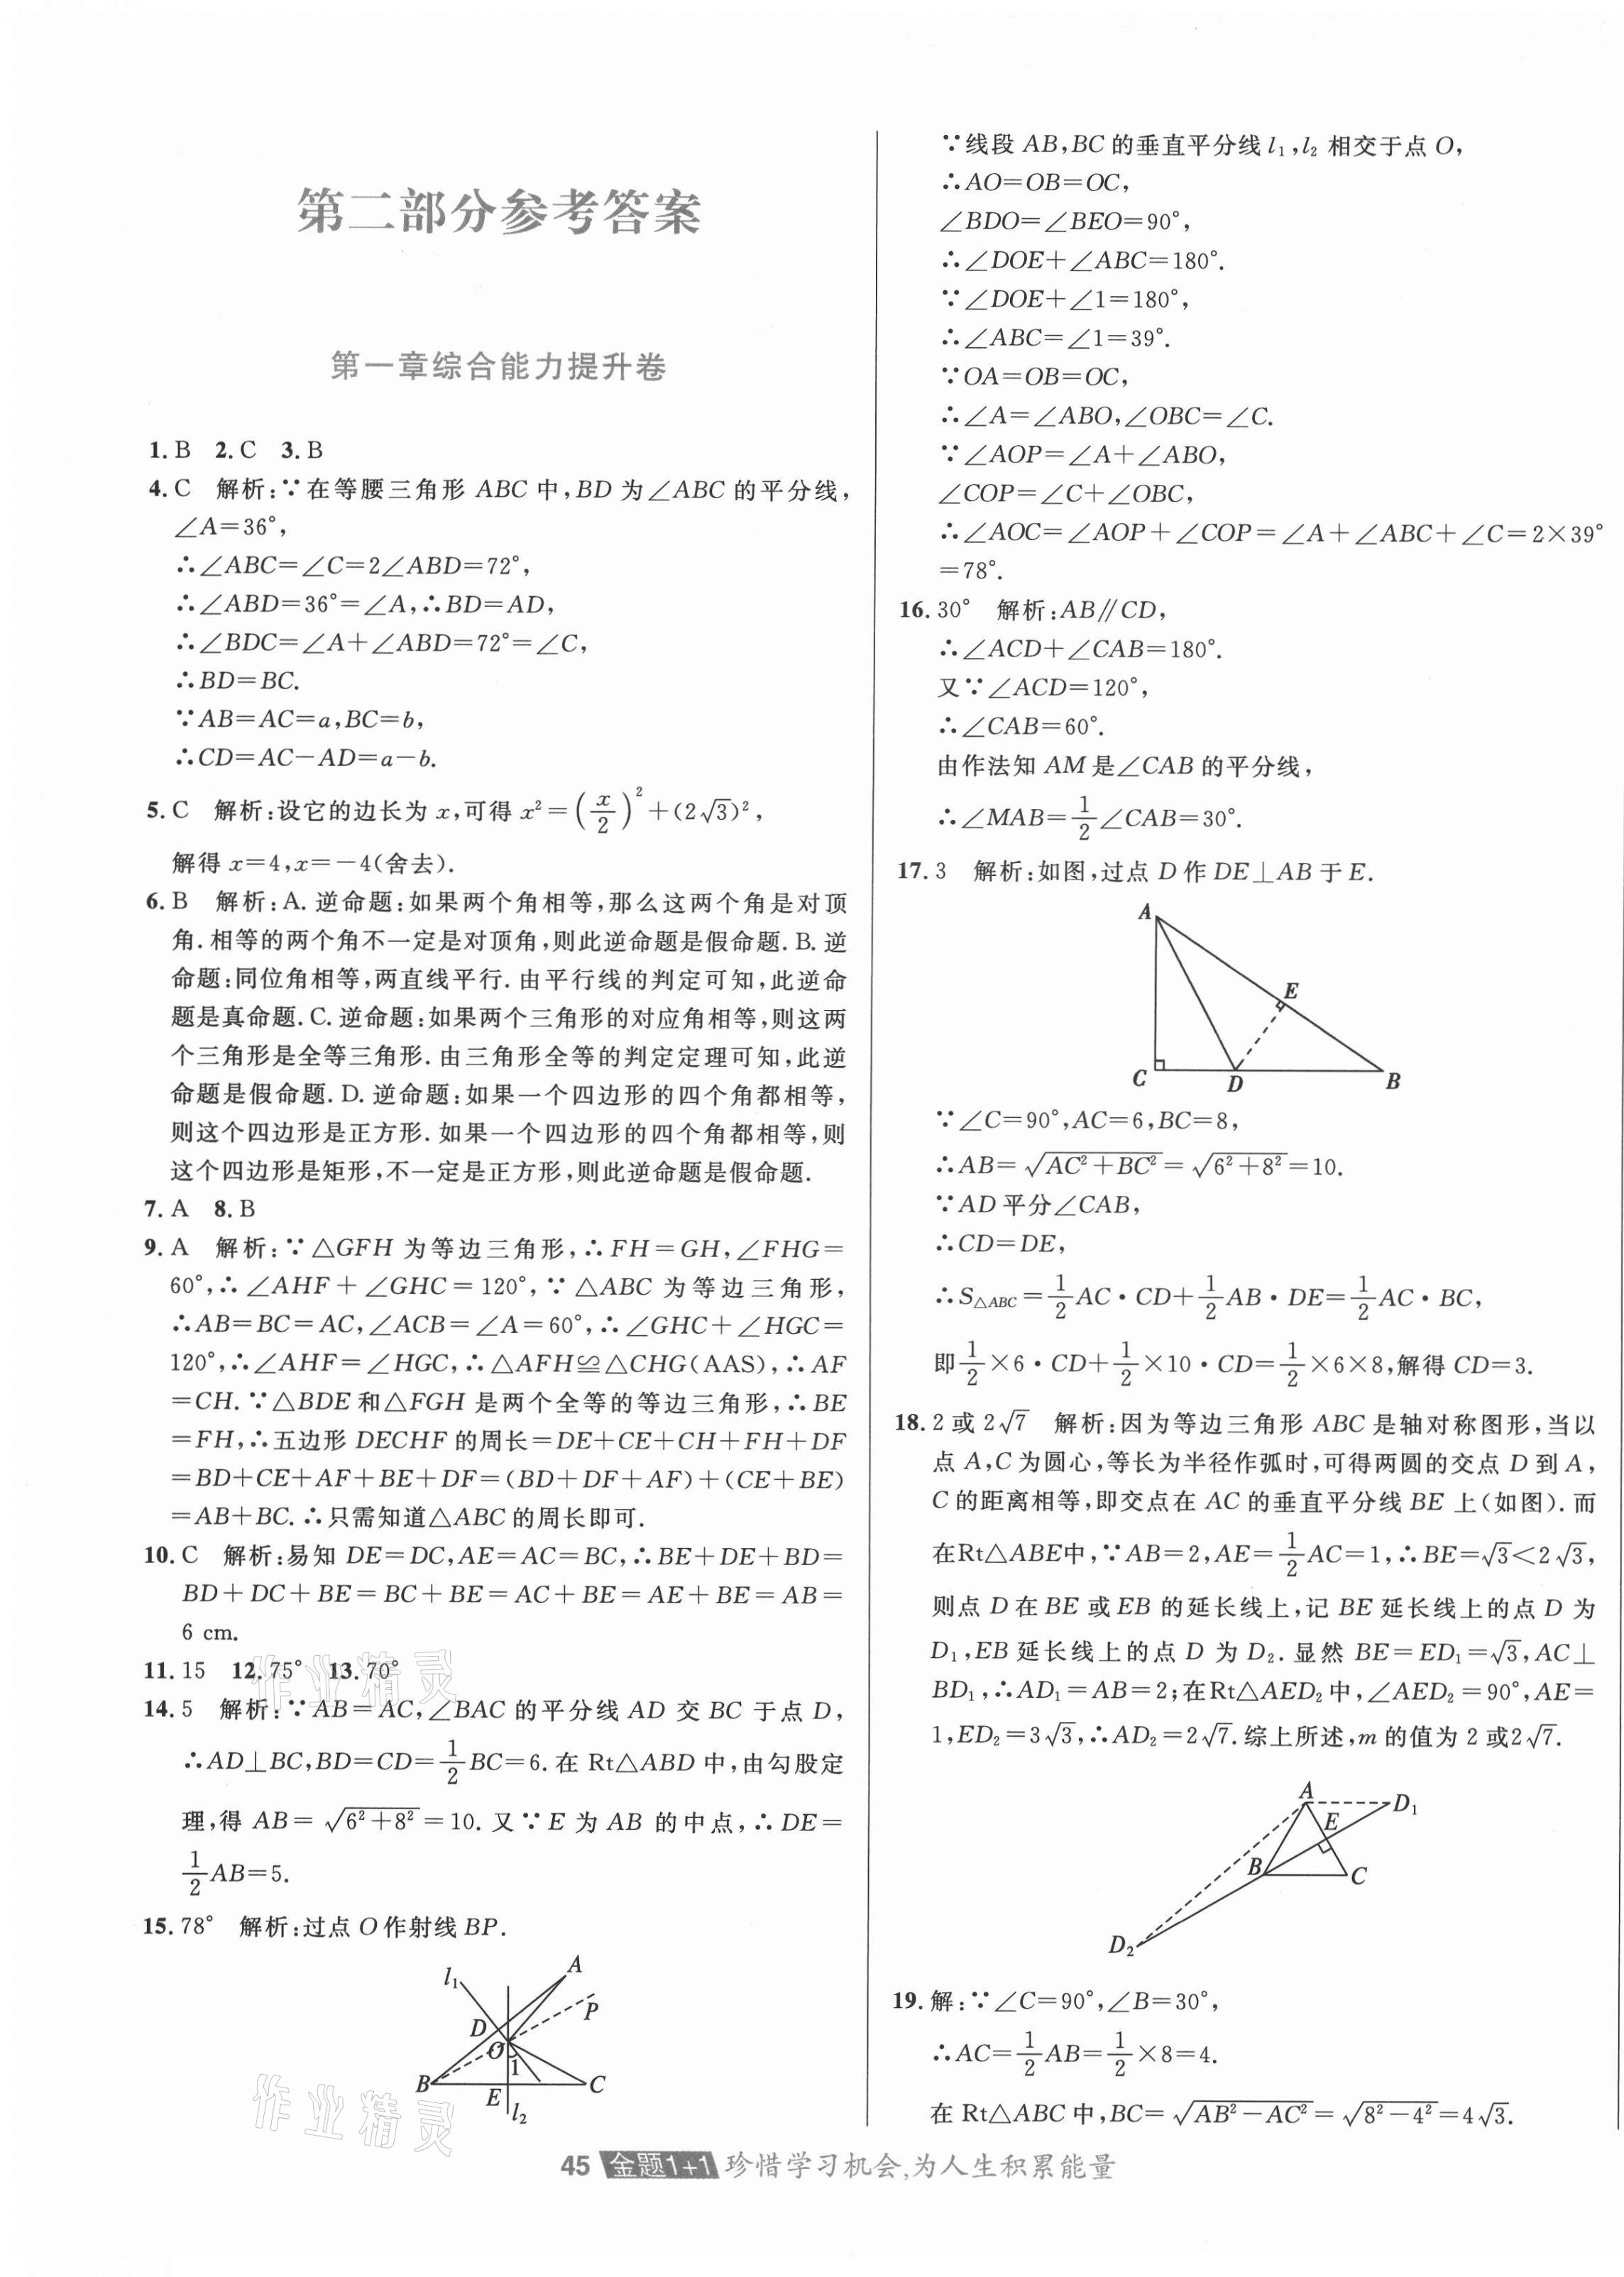 第二部分参考答案
第一章综合能力提升卷
1. B 2. C 3. B
4. C 解析:∵在等腰三角形 ABC 中,BD 为∠ABC 的平分线,
∠A=36°,
∴∠ABC=∠C=2∠ABD=72°,
∴∠ABD=36°=∠A,∴BD=AD,
∴∠BDC=∠A+∠ABD=72°=∠C,
∴BD=BC.
∵AB=AC=a,BC=b,
∴CD=AC-AD=a-b.
5. C 解析:设它的边长为 x,可得 x²=(x/2)²+(2√3)²,
解得 x=4,x=-4(舍去).
6. B 解析:A. 逆命题:如果两个角相等,那么这两个角是对顶
角.相等的两个角不一定是对顶角,则此逆命题是假命题. B. 逆
命题:同位角相等,两直线平行.由平行线的判定可知,此逆命
题是真命题. C. 逆命题:如果两个三角形的对应角相等,则这两
个三角形是全等三角形.由三角形全等的判定定理可知,此逆
命题是假命题. D. 逆命题:如果一个四边形的四个角都相等,
则这个四边形是正方形.如果一个四边形的四个角都相等,则
这个四边形是矩形,不一定是正方形,则此逆命题是假命题.
7. A 8. B
9. A 解析:∵△GFH 为等边三角形,∴FH=GH,∠FHG=
60°,∴∠AHF+∠GHC=120°,∵△ABC 为等边三角形,
∴AB=BC=AC,∠ACB=∠A=60°,∴∠GHC+∠HGC=
120°,∴∠AHF=∠HGC,∴△AFH≌△CHG(AAS),∴AF
=CH.∵△BDE 和△FGH 是两个全等的等边三角形,∴BE
=FH,∴五边形 DECHF 的周长=DE+CE+CH+FH+DF
=BD+CE+AF+BE+DF=(BD+DF+AF)+(CE+BE)
=AB+BC.∴只需知道△ABC 的周长即可.
10. C 解析:易知 DE=DC,AE=AC=BC,∴BE+DE+BD=
BD+DC+BE=BC+BE=AC+BE=AE+BE=AB=
6 cm.
11. 15 12. 75° 13. 70°
14. 5 解析:∵AB=AC,∠BAC 的平分线 AD 交 BC 于点 D,
∴AD⊥BC,BD=CD=1/2BC=6.在 Rt△ABD 中,由勾股定
理,得 AB=√(6²+8²)=10.又∵E 为 AB 的中点,∴DE=
1/2AB=5.
15. 78° 解析:过点 O 作射线 BP.
l₁
A
P
D
O
1
B
E
C
l₂
∵线段 AB,BC 的垂直平分线 l₁,l₂ 相交于点 O,
∴AO=OB=OC,
∠BDO=∠BEO=90°,
∴∠DOE+∠ABC=180°.
∵∠DOE+∠1=180°,
∴∠ABC=∠1=39°.
∵OA=OB=OC,
∴∠A=∠ABO,∠OBC=∠C.
∵∠AOP=∠A+∠ABO,
∠COP=∠C+∠OBC,
∴∠AOC=∠AOP+∠COP=∠A+∠ABC+∠C=2×39°
=78°.
16. 30° 解析:AB∥CD,
∴∠ACD+∠CAB=180°.
又∵∠ACD=120°,
∴∠CAB=60°.
由作法知 AM 是∠CAB 的平分线,
∴∠MAB=1/2∠CAB=30°.
17. 3 解析:如图,过点 D 作 DE⊥AB 于 E.
A
E
C
D
B
∵∠C=90°,AC=6,BC=8,
∴AB=√(AC²+BC²)=√(6²+8²)=10.
∵AD 平分∠CAB,
∴CD=DE,
∴S△ABC=1/2AC·CD+1/2AB·DE=1/2AC·BC,
即1/2×6·CD+1/2×10·CD=1/2×6×8,解得 CD=3.
18. 2 或 2√7 解析:因为等边三角形 ABC 是轴对称图形,当以
点 A,C 为圆心,等长为半径作弧时,可得两圆的交点 D 到 A,
C 的距离相等,即交点在 AC 的垂直平分线 BE 上(如图).而
在Rt△ABE中,∵AB=2,AE=1/2AC=1,∴BE=√3<2√3,
则点 D 在 BE 或 EB 的延长线上,记 BE 延长线上的点 D 为
D₁,EB 延长线上的点 D 为 D₂.显然 BE=ED₁=√3,AC⊥
BD₁,∴AD₁=AB=2;在Rt△AED₂中,∠AED₂=90°,AE=
1,ED₂=3√3,∴AD₂=2√7.综上所述,m 的值为 2 或2√7.
A
D₁
E
B
C
D₂
19. 解:∵∠C=90°,∠B=30°,
∴AC=1/2AB=1/2×8=4.
在 Rt△ABC 中,BC=√(AB²-AC²)=√(8²-4²)=4√3.
45 金题1+1 珍惜学习机会,为人生积累能量
作业精灵
作业精灵